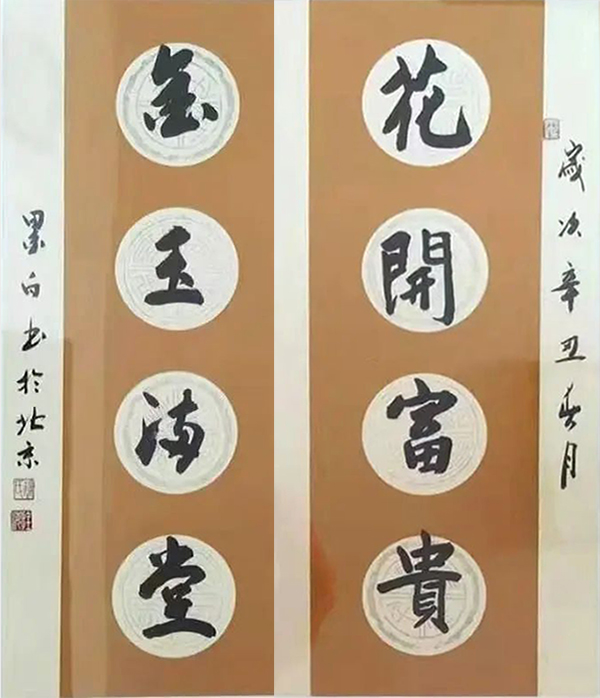 歲次辛丑春月
花開富貴
金玉滿堂
墨白书於北京